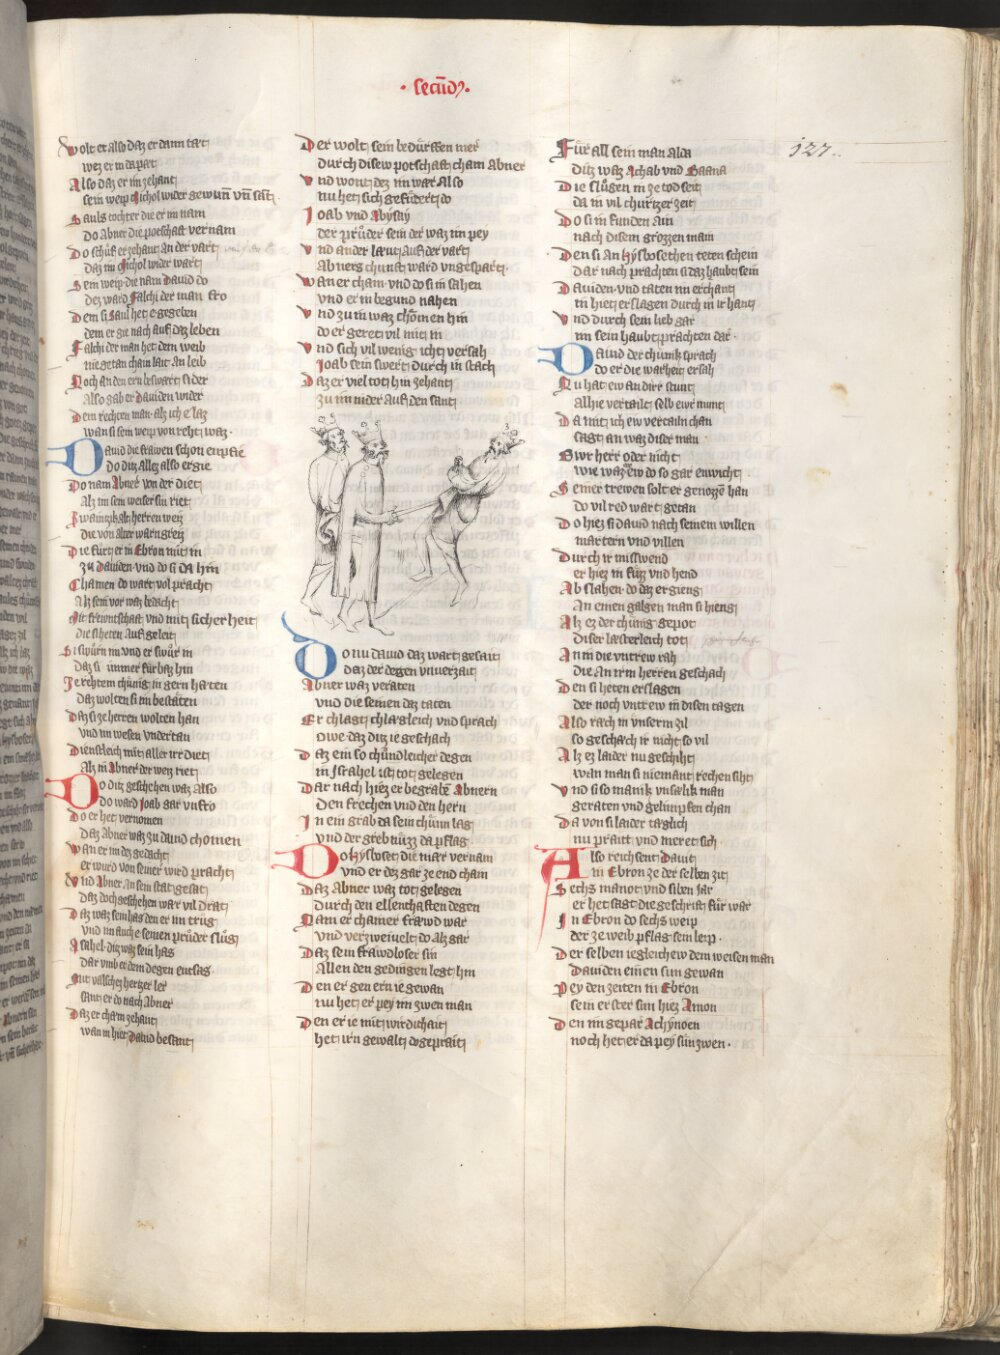 · Secund9.
127.
Wolt er also daz er dann tät
wez er in da pät
Also daz er im zehant
sein weip Michol wider gewunn vnd sant
Sauls tochter die er im nam
do Abner die potschaft vernam
Do schuf er zehant an der vart
daz im Michol wider wart
Sein weip die nam Dauid do
dez ward Falchi der man fro
Dem si Saul het e gegeben
dem er gie nach auf daz leben
Falchi der man het dem weib
nie getan chain lait an leib
Noch an den ern beswart sider
Also gab er Dauiden wider
Dem rechten man alz ich e laz
wan si sein weip von reht waz ·
Dauid die frawen schon enpfie
do ditz allez also ergie
Do nam Abner von der diet
Alz im sein weiser sin riet
Zwainzik alt herren weiz
die von alter warn greiz
Die fürt er in Ebron mit im
zu Dauiden vnd do si da hin
Chamen do wart vol pracht
Alz sein vor waz bedacht
Mit frewntschaft vnd mit sicherheit
die si heten auf geleit
Si swürn im vnd er swür in
daz si immer fürbaz hin
Ze rehtem chünig in gern haten
daz wolten si im bestäten
Daz si ze herren wolten han
vnd im wesen vndertan
Dienstleich mit aller irr diet
Alz in Abner der weiz riet
Do ditz geschehen waz also
do ward Joab gar vnfro
Do er het vernomen
daz Abner waz zu dauid chomen
Wan er im dez gedacht
er wurd von seiner wird pracht
Vnd Abner an sein stat gesat
daz doch geschehen wär vil drat
Daz waz sein has den er im trug
vnd im auch e seinen prüder slug
Asahel ditz waz sein has
dar vmb er dem degen entsas
Mit valscher hertzer ler
sant er do nach Abner
Daz er cham zehant
wan in hiet Dauid besant
Der wolt sein bedürffen mer
durch disew potschaft cham Abner
Vnd wont dez im wär also
nu het sich gefüdert do
Joab vnd Abysay
der prüder sein der waz im pey
Vnd ander läut auf der vart
Abners chunft ward vngespart ·
Wan er cham vnd do si in sahen
vnd er in begund nahen
Vnd zu in waz chomen hin
do er geret vil mit in
Vnd sich vil wenig icht versah
Joab sein swert durch in stach
Daz er viel tot hin zehant
zu im nider auf den sant
Do nu dauid daz wart gesait
daz der degen vnuerzait
Abner waz veraten
vnd die seinen daz taten
Er chlagt chlägleich vnd sprach
Owe daz ditz ie geschach
Daz ein so chündleicher degen
in Israhel ist tot gelegen
Dar nach hiez er begraben Abnern
den frechen vnd den hern
In ein grab da sein chünn lag
vnd der grebnüzz da pflag
Do Hysboset die mär vernam
vnd er dez gar ze end cham
Daz Abner waz tot gelegen
durch den ellenthaften degen
Nam er chainer frawd war
vnd verzweiuelt do alz gar
Daz sein frawdloser sin
Allen den gedingen legt hin
Den er gen ern ie gewan
nu het er pey im zwen man
Den er ie mit wirdichait
het irn gewalt do geprait
Für all sein man alda
ditz waz Achab vnd Baana
Die slugen in ze tod seit
da in vil churtzer zeit
Do si in funden ain
nach disem grozzen main
Den si an Hysbosethen teten schein
dar nach prachten si daz haubt sein
Dauiden vnd taten im erchant
in hiet erslagen durch in ir hant
Vnd durch sein lieb gar
im sein haubt prachten dar ·
Dauid der chünk sprach
do er die warheit ersah
Nu hat ew an dirr stunt
Alhie vertailt selb ewr munt
Da mit ich ew vertailn chan
sagt an waz diser man
Ewr herr oder nicht
wie waz ew do so gar enwicht
Seiner trewen solt er genozzen han
do vil red wart getan
Do hiez si dauid nach seinem willen
martern vnd villen
Durch ir misswend
er hiez in füzz vnd hend
Ab slahen do daz ergieng
An einen galgen man si hieng
Alz ez der chünig gepot
diser lästerleich tot
An in die vntrew rah
die an irm herren geschach
Den si heten erslagen
der noch vntrew in disen tagen
Also räch in vnserm zil
so geschäch ir nicht so vil
Alz ez laider nu geschiht
wan man si niemant rechen siht
Vnd si so manik vnsälik man
geraten vnd gelimpfen chan
Da von si laider täglich
nu prait vnd meret sich
Also reichsent Dauit
in Ebron ze der selben zit
Sechs manot vnd siben jar
er het sagt die geschrift für war
In Ebron do sechs weip
der ze weib pflag sein leip ·
Der selben iegleichew dem weisen man
Dauiden einen sun gewan
Pey den zeiten in Ebron
sein erster sun hiez Amon
Den im gepar Achynoen
noch het er da pey sün zwen ·